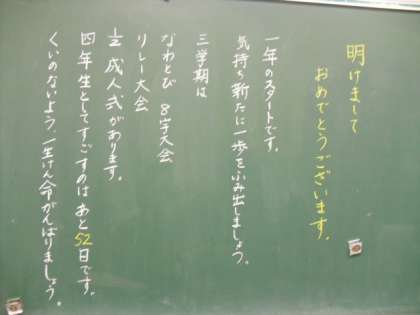 明けまして
おめでとうございます。
一年のスタートです。
気持ち新たに一歩をふみ出しましょう。
三学期は
なわとび 8字大会
リレー大会
½成人式があります。
四年生としてすごすのは あと52日です。
くいのないよう、一生けん命がんばりましょう。